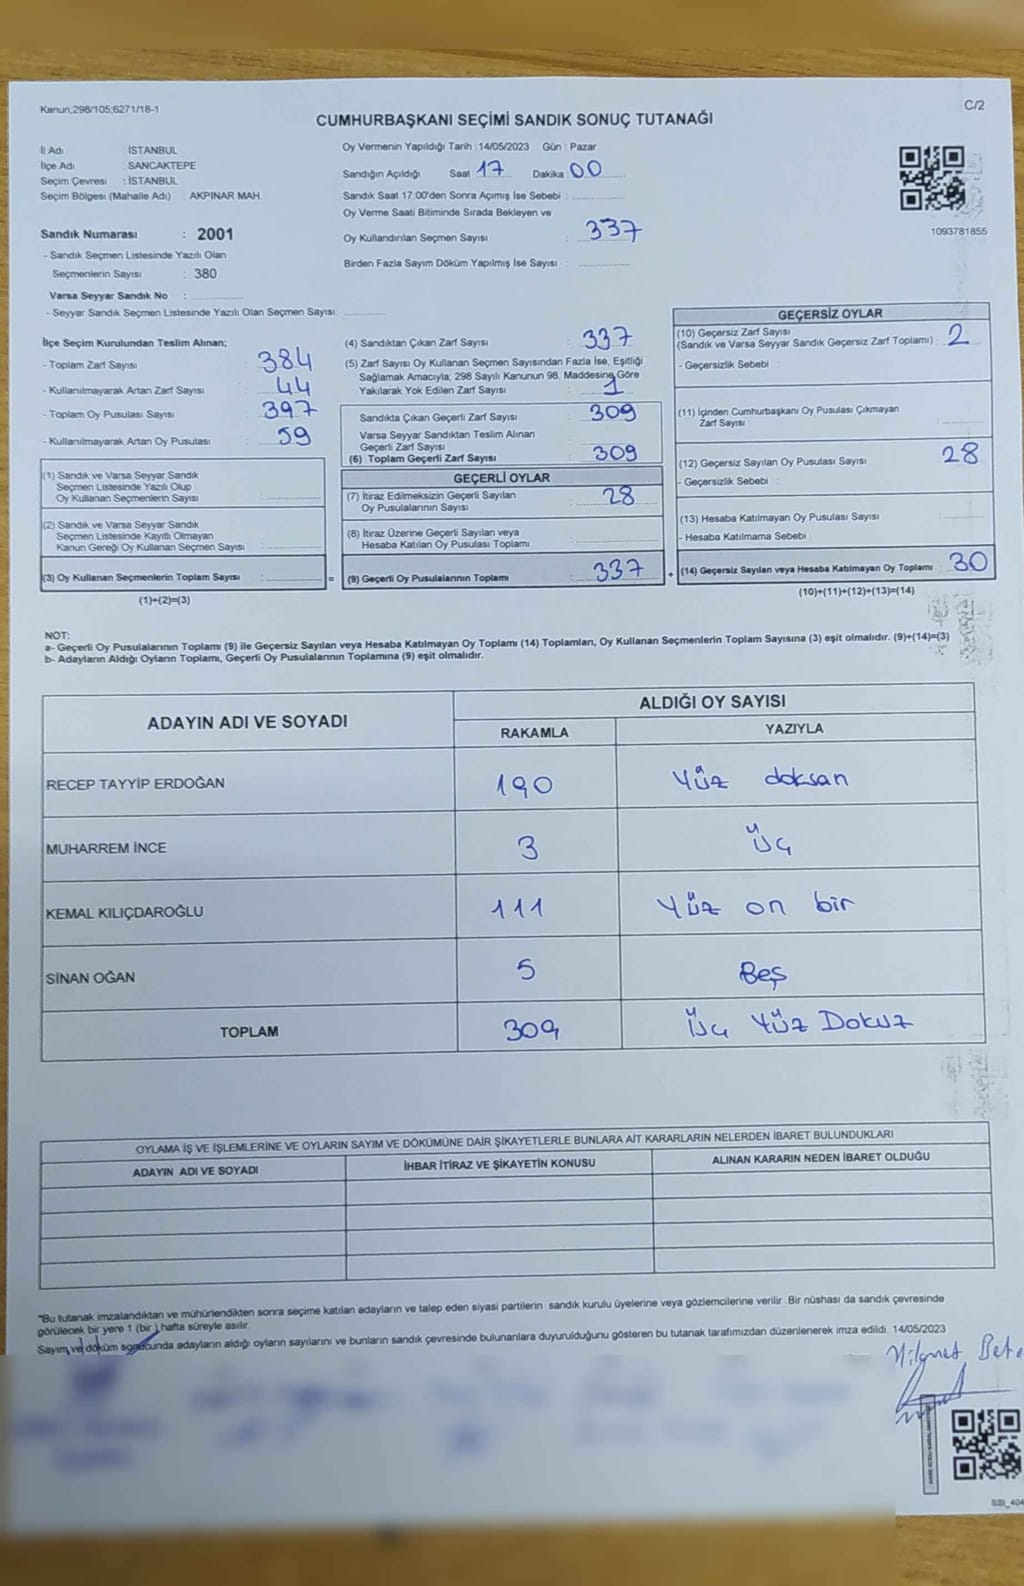 Kanun;298/105;6271/18-1
C/2
CUMHURBAŞKANI SEÇİMİ SANDIK SONUÇ TUTANAĞI
İl Adı : İSTANBUL
İlçe Adı : SANCAKTEPE
Seçim Çevresi : İSTANBUL
Seçim Bölgesi (Mahalle Adı) : AKPINAR MAH.
Sandık Numarası : 2001
- Sandık Seçmen Listesinde Yazılı Olan
Seçmenlerin Sayısı : 380
Varsa Seyyar Sandık No :
- Seyyar Sandık Seçmen Listesinde Yazılı Olan Seçmen Sayısı:
Oy Vermenin Yapıldığı Tarih : 14/05/2023 Gün : Pazar
Sandığın Açıldığı Saat 17 Dakika 00
Sandık Saat 17:00'den Sonra Açımış İse Sebebi :
Oy Verme Saati Bitiminde Sırada Bekleyen ve
Oy Kullandırılan Seçmen Sayısı : 337
Birden Fazla Sayım Döküm Yapılmış İse Sayısı :
1093781855
İlçe Seçim Kurulundan Teslim Alınan;
- Toplam Zarf Sayısı : 384
- Kullanılmayarak Artan Zarf Sayısı : 44
- Toplam Oy Pusulası Sayısı : 397
- Kullanılmayarak Artan Oy Pusulası : 59
(1) Sandık ve Varsa Seyyar Sandık
Seçmen Listesinde Yazılı Olup
Oy Kullanan Seçmenlerin Sayısı :
(2) Sandık ve Varsa Seyyar Sandık
Seçmen Listesinde Kayıtlı Olmayan
Kanun Gereği Oy Kullanan Seçmen Sayısı :
(3) Oy Kullanan Seçmenlerin Toplam Sayısı : =
(1)+(2)=(3)
(4) Sandıktan Çıkan Zarf Sayısı : 337
(5) Zarf Sayısı Oy Kullanan Seçmen Sayısından Fazla İse, Eşitliği
Sağlamak Amacıyla; 298 Sayılı Kanunun 98. Maddesine Göre
Yakılarak Yok Edilen Zarf Sayısı : 1
Sandıkta Çıkan Geçerli Zarf Sayısı : 309
Varsa Seyyar Sandıktan Teslim Alınan
Geçerli Zarf Sayısı :
(6) Toplam Geçerli Zarf Sayısı : 309
GEÇERLİ OYLAR
(7) İtiraz Edilmeksizin Geçerli Sayılan
Oy Pusulalarının Sayısı : 28
(8) İtiraz Üzerine Geçerli Sayılan veya
Hesaba Katılan Oy Pusulası Toplamı :
(9) Geçerli Oy Pusulalarının Toplamı : 337 +
GEÇERSİZ OYLAR
(10) Geçersiz Zarf Sayısı
(Sandık ve Varsa Seyyar Sandık Geçersiz Zarf Toplamı) : 2
- Geçersizlik Sebebi :
(11) İçinden Cumhurbaşkanı Oy Pusulası Çıkmayan
Zarf Sayısı :
(12) Geçersiz Sayılan Oy Pusulası Sayısı : 28
- Geçersizlik Sebebi :
(13) Hesaba Katılmayan Oy Pusulası Sayısı :
- Hesaba Katılmama Sebebi :
(14) Geçersiz Sayılan veya Hesaba Katılmayan Oy Toplamı : 30
(10)+(11)+(12)+(13)=(14)
NOT:
a- Geçerli Oy Pusulalarının Toplamı (9) ile Geçersiz Sayılan veya Hesaba Katılmayan Oy Toplamı (14) Toplamları, Oy Kullanan Seçmenlerin Toplam Sayısına (3) eşit olmalıdır. (9)+(14)=(3)
b- Adayların Aldığı Oyların Toplamı, Geçerli Oy Pusulalarının Toplamına (9) eşit olmalıdır.
ADAYIN ADI VE SOYADI
ALDIĞI OY SAYISI
RAKAMLA YAZIYLA
RECEP TAYYİP ERDOĞAN 190 Yüz doksan
MUHARREM İNCE 3 Üç
KEMAL KILIÇDAROĞLU 111 Yüz on bir
SİNAN OĞAN 5 Beş
TOPLAM 309 Üç Yüz Dokuz
OYLAMA İŞ VE İŞLEMLERİNE VE OYLARIN SAYIM VE DÖKÜMÜNE DAİR ŞİKAYETLERLE BUNLARA AİT KARARLARIN NELERDEN İBARET BULUNDUKLARI
ADAYIN ADI VE SOYADI İHBAR İTİRAZ VE ŞİKAYETİN KONUSU ALINAN KARARIN NEDEN İBARET OLDUĞU
"Bu tutanak imzalandıktan ve mühürlendikten sonra seçime katılan adayların ve talep eden siyasi partilerin sandık kurulu üyelerine veya gözlemcilerine verilir .Bir nüshası da sandık çevresinde
görülecek bir yere 1 (bir ) hafta süreyle asılır.
Sayım ve döküm sonucunda adayların aldığı oyların sayılarını ve bunların sandık çevresinde bulunanlara duyurulduğunu gösteren bu tutanak tarafımızdan düzenlenerek imza edildi. 14/05/2023